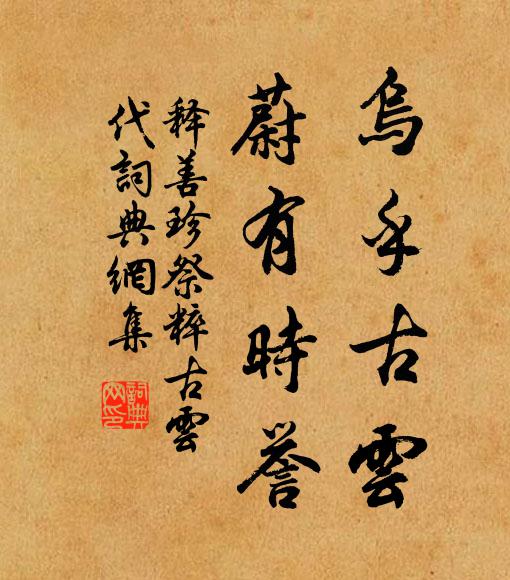 烏乎古雲
蔚有時誉
释善珍祭粹古雲
代詞典網集
詞典网印